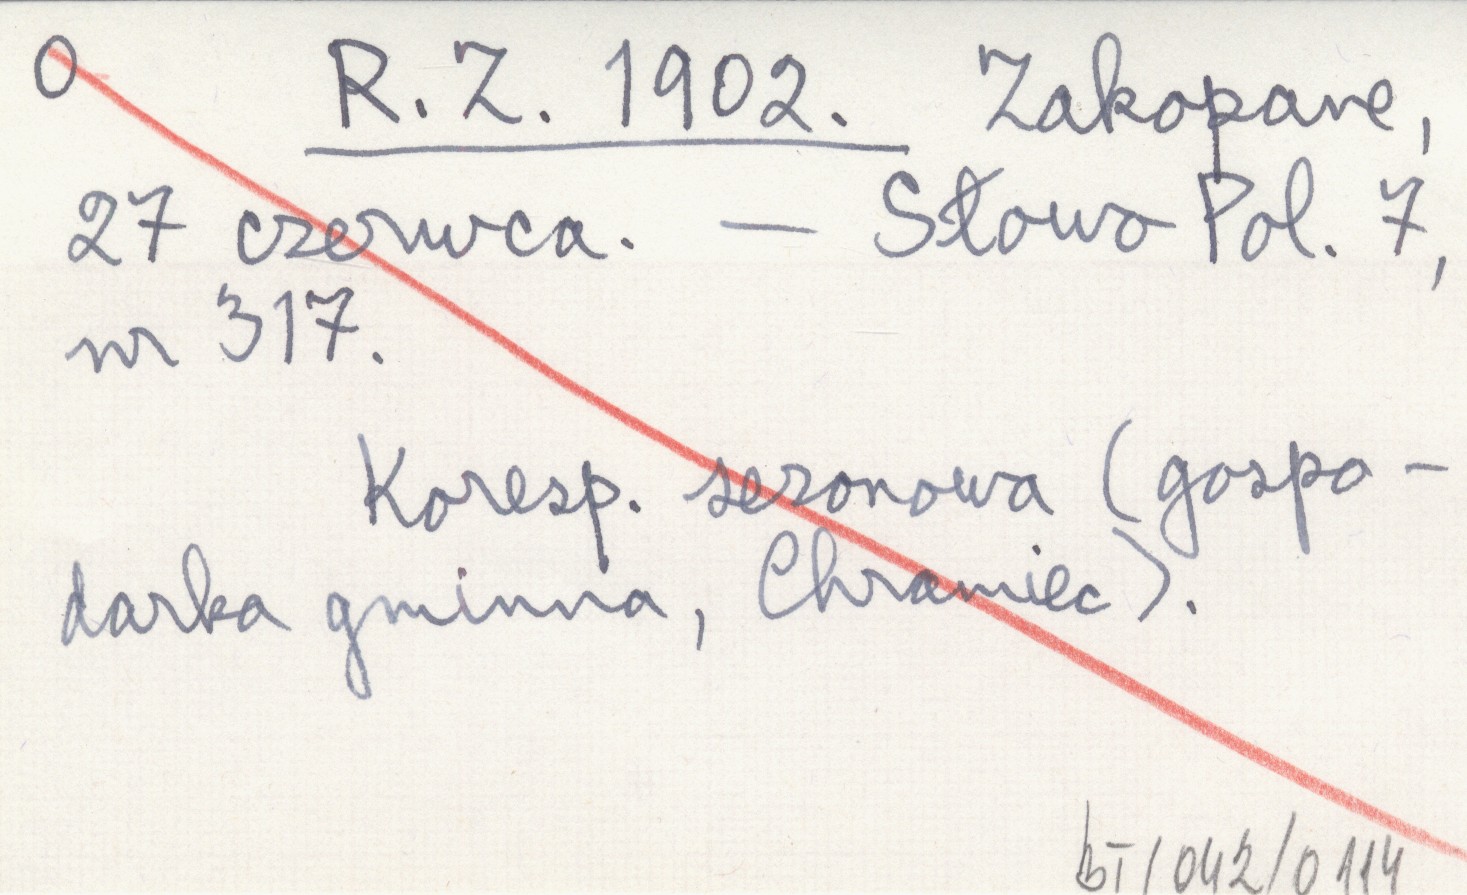 O R. Z. 1902. Zakopane,
27 czerwca. — Słowo Pol. 7,
nr 317.
Koresp. sezonowa (gospo-
darka gminna, Chramiec).
bT/042/0114